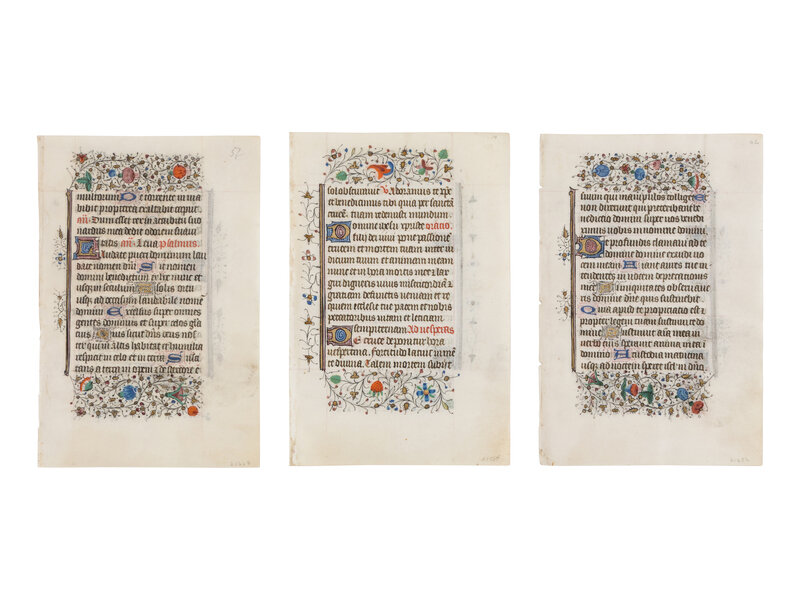 52
multorum De torrente in via
bibit propterea exaltabit caput
añ. Dum esset rex in accubitu suo
nardus mea dedit odorem suavi
tatis añ. Leua psalmus.
Laudate pueri dominum lau
date nomen dñi Sit nomen
domini benedictum ex hoc nunc et
usqȝ in seculum A solis ortu
usqȝ ad occasum laudabile nomē
domini Excelsus super omnes
gentes dominus et super celos gl̃a
eius Quis sicut dñs deus nos
ter qui in altis habitat et humilia
respicit in celo et in terra Susci
tans a terra inopem z de stercore e
sol obscuratur V Adoramus te xp̃e
et benedicimus tibi quia per sanctā
crucē tuam redemisti mundum
Domine iesu xp̃iste oratio
fili dei viui pone passionē
crucem et mortem tuam inter iu
dicium tuum et animam meam
nunc et in hora mortis mee z lar
giri digneris viuis misericordiam z
gratiam defunctis veniam et re
quiem ecclesie tue pacem et nobis
peccatoribus vitam et leticiam
sempiternam Ad vesperas
De cruce deponitur hora
vespertina Fortitudo latuit in mēte
te diuina Talem mortem subiit
suum qui manipulos colliget
Et non dixerunt qui preteribant be
nedictio domini super vos bened
iximus vobis in nomine domini
De profundis clamaui ad te
domine domine exaudi vo
cem meam Fiant aures tue in
tendentes in vocem deprecationis
mee Si iniquitates obseruaue
ris domine dñe quis sustinebit
Quia apud te propiciatio est z
propter legem tuam sustinui te do
mine Sustinuit anima mea in
verbo eius sperauit anima mea i
domino A custodia matutina
usqȝ ad noctem speret isrl in dño